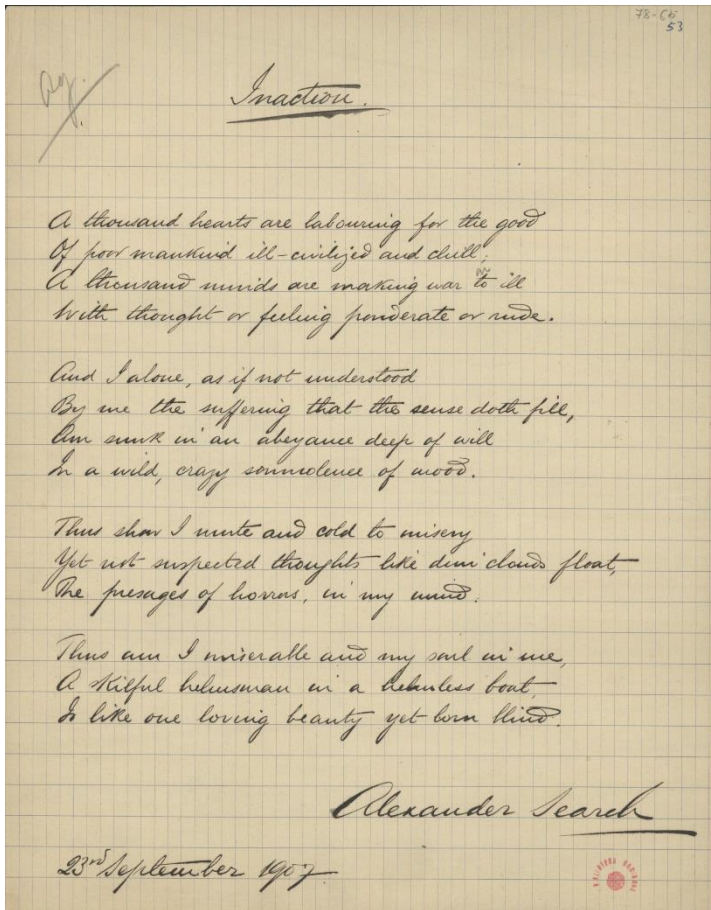 78-65
53
Inaction.
A thousand hearts are labouring for the good
Of poor mankind ill-civilized and chill;
A thousand minds are making war to ill
With thought or feeling ponderate or rude.
And I alone, as if not understood
By me the suffering that the sense doth fill,
Am sunk in an abeyance deep of will
In a wild, crazy somnolence of mood.
Thus show I mute and cold to misery
Yet not suspected thoughts like dim clouds float,
The presages of horrors, in my mind.
Thus am I miserable and my soul in me,
A skilful helmsman in a helmless boat,
Is like one loving beauty yet born blind.
Alexander Search
23rd September 1907